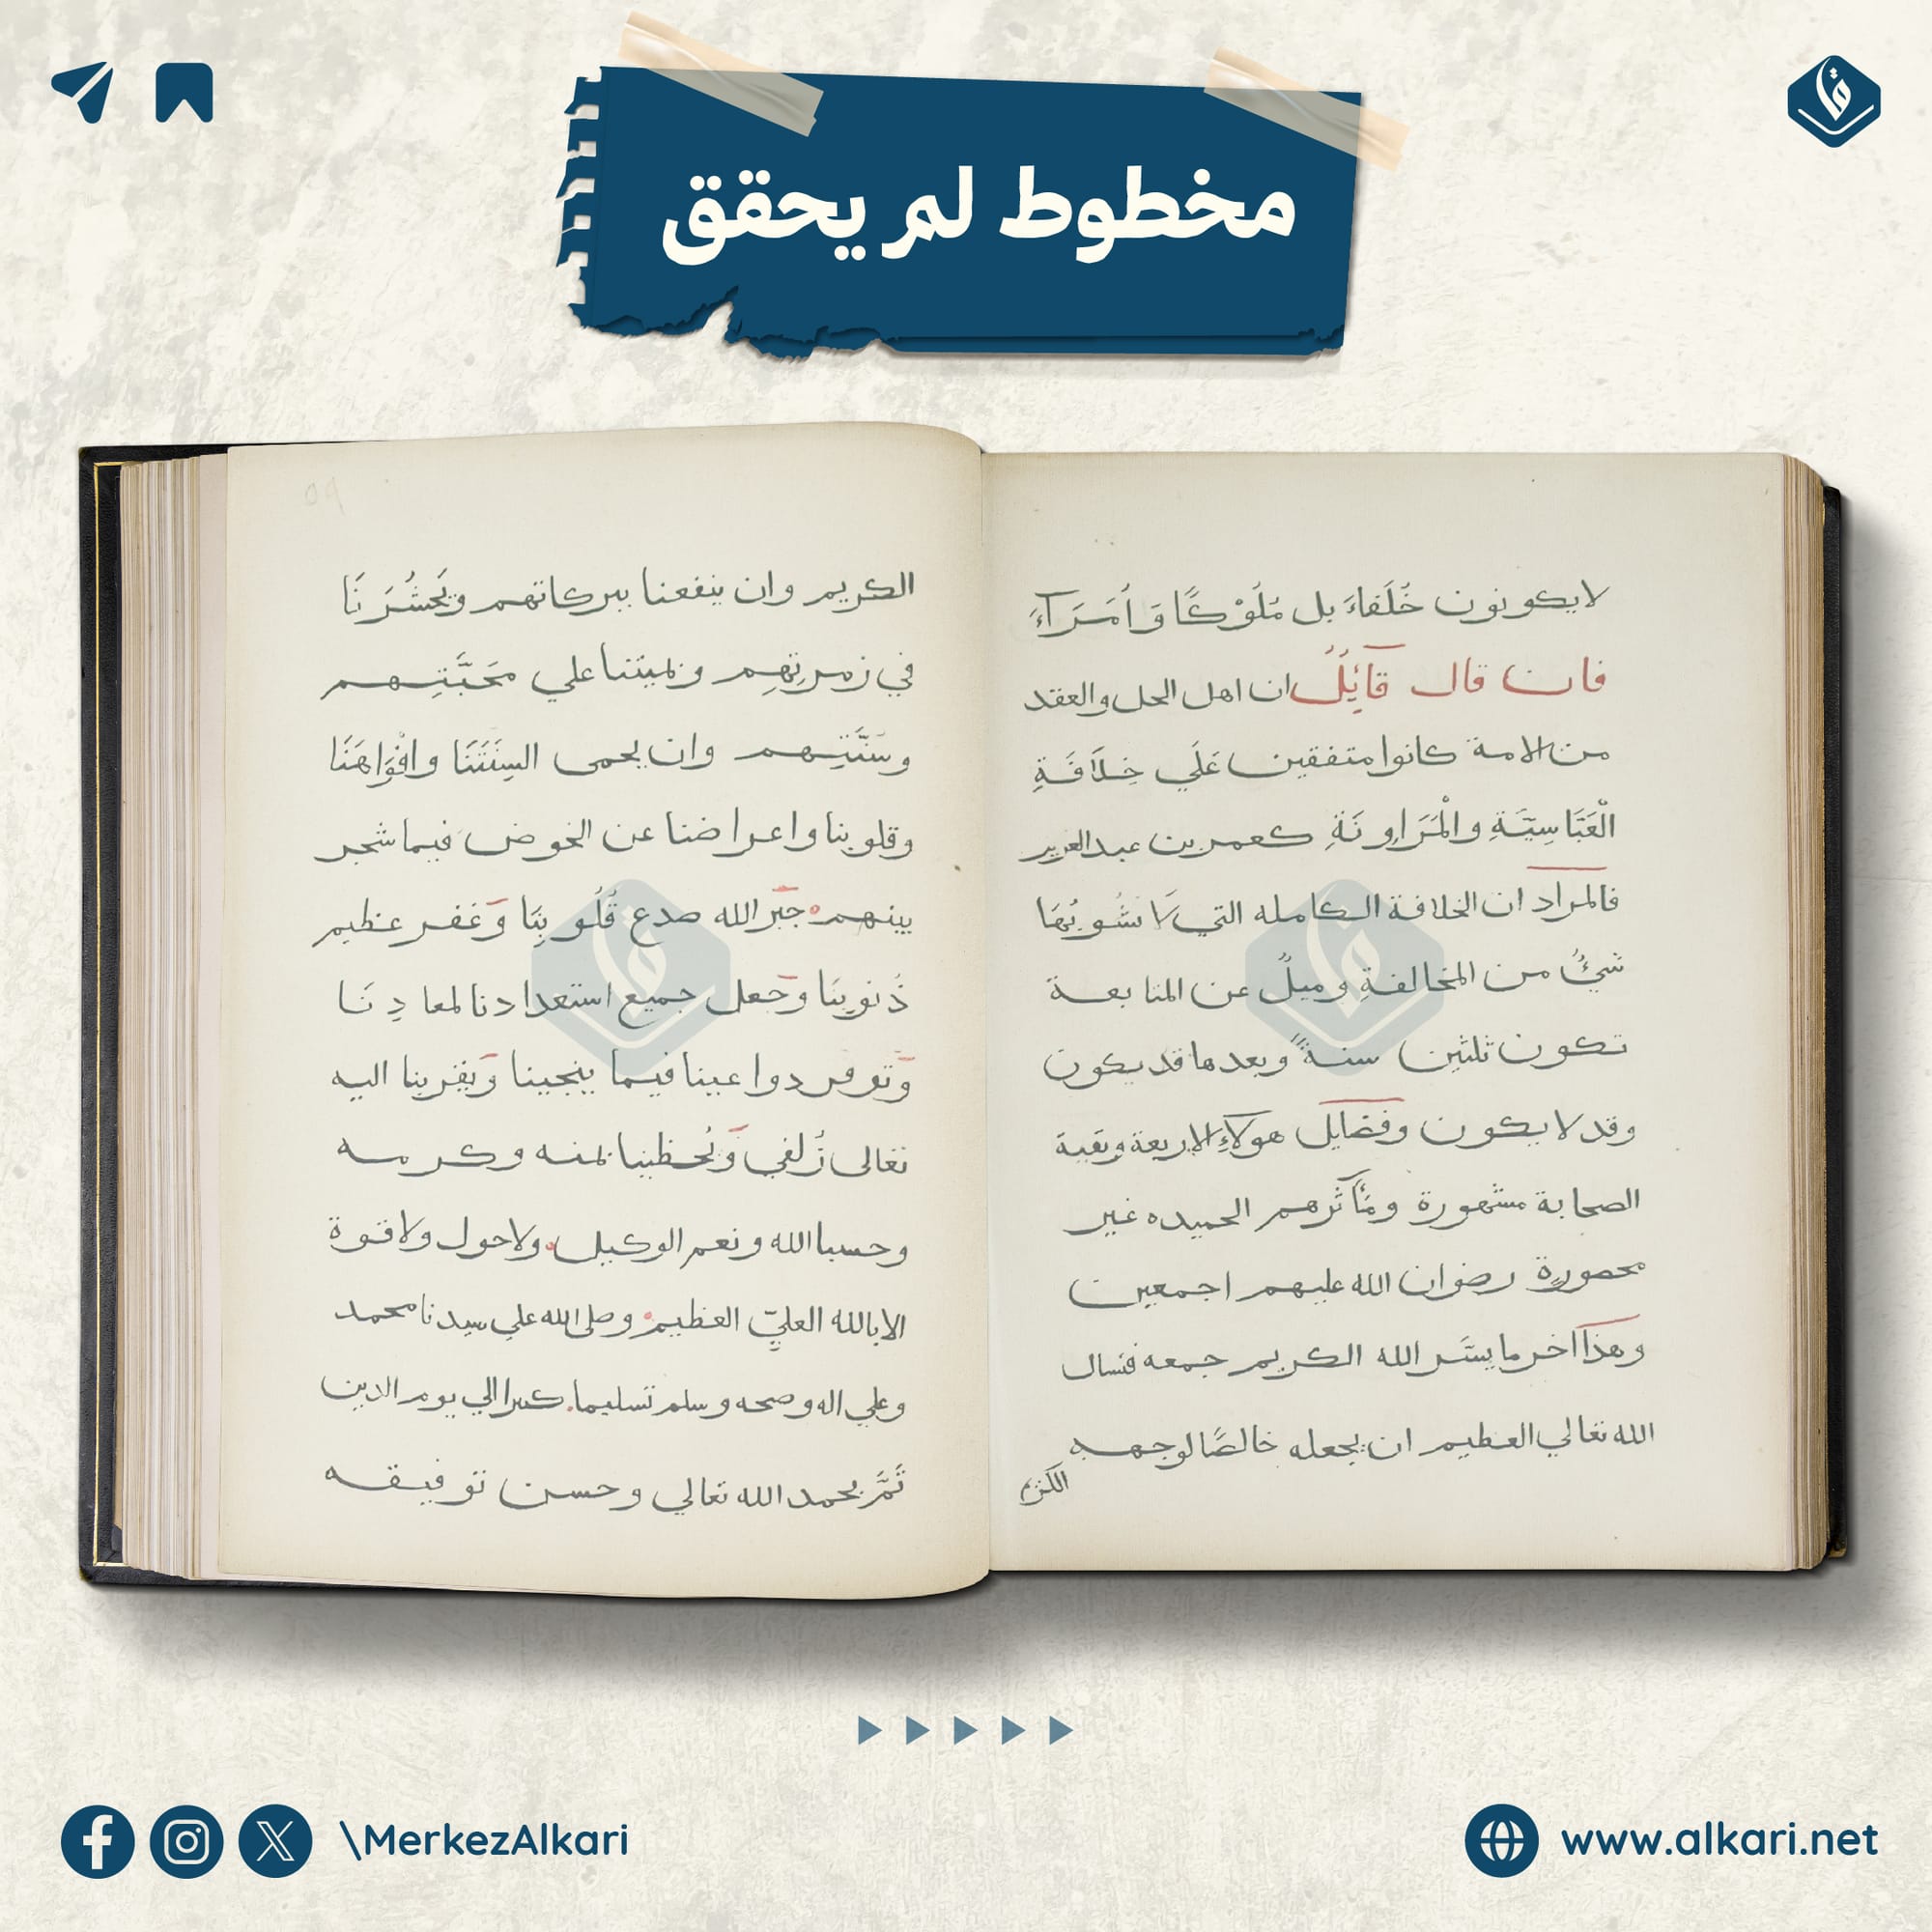 مخطوط لم يحقق
لايكونون خُلَفاءَ بل مُلُوْكًا وَأُمَرَآءً
فان قال قَآئِلٌ ان اهل الحل والعقد
من الامة كانوا متفقين عَلَي خِلَافَةِ
الْعَبَّاسِيَّةِ والْمَرَاوِنَةِ كعمر بن عبد العزيز
فالمراد ان الخلافة الكامله التي لا تشُوبُهَا
شيئٌ من المخالفةِ وميلٌ عن المتابعة
تكون ثلثين سنةً وبعدها قد يكون
وقد لا يكون وفضايل هولاءِ الاربعة وبقية
الصحابة مشهورة ومَأٰثرهم الحميده غير
محصورة رضوان الله عليهم اجمعين
وهذا آخر ما يسَّر الله الكريم جمعه فنسال
الله تعالي العظيم ان يجعله خالصًا لوجهه
الكريم
٥٩
الكريم وان ينفعنا ببركاتهم ويَحْشُرَنَا
في زمرتِهِم ويميتنا علي مَحَبَّتِهم
وسُنَّتِهم وان يحمى السِنَتَنَا وافْوَاهَنَا
وقلوبنا واعراضنا عن الخوض فيما شجر
بينهم جبَر الله صدع قُلُوبِنَا وَغفر عظيم
ذُنوبِنَا وَجعل جميع استعدادنا لمعادِنَا
وَتوفر دواعينا فيما ينجينا وَيقربنا اليه
تعالى زُلفي وَيُحظينا بمنه وكرمه
وحسبنا الله ونعم الوكيل ولاحول ولاقوة
الا بالله العليِّ العظيم وصلى الله علي سيدنا محمد
وعلي اله وصحبه وسلم تسليما كثيرا الي يوم الدين
تَمَّ بحمد الله تعالي وحسن توفيقه
\MerkezAlkari
www.alkari.net